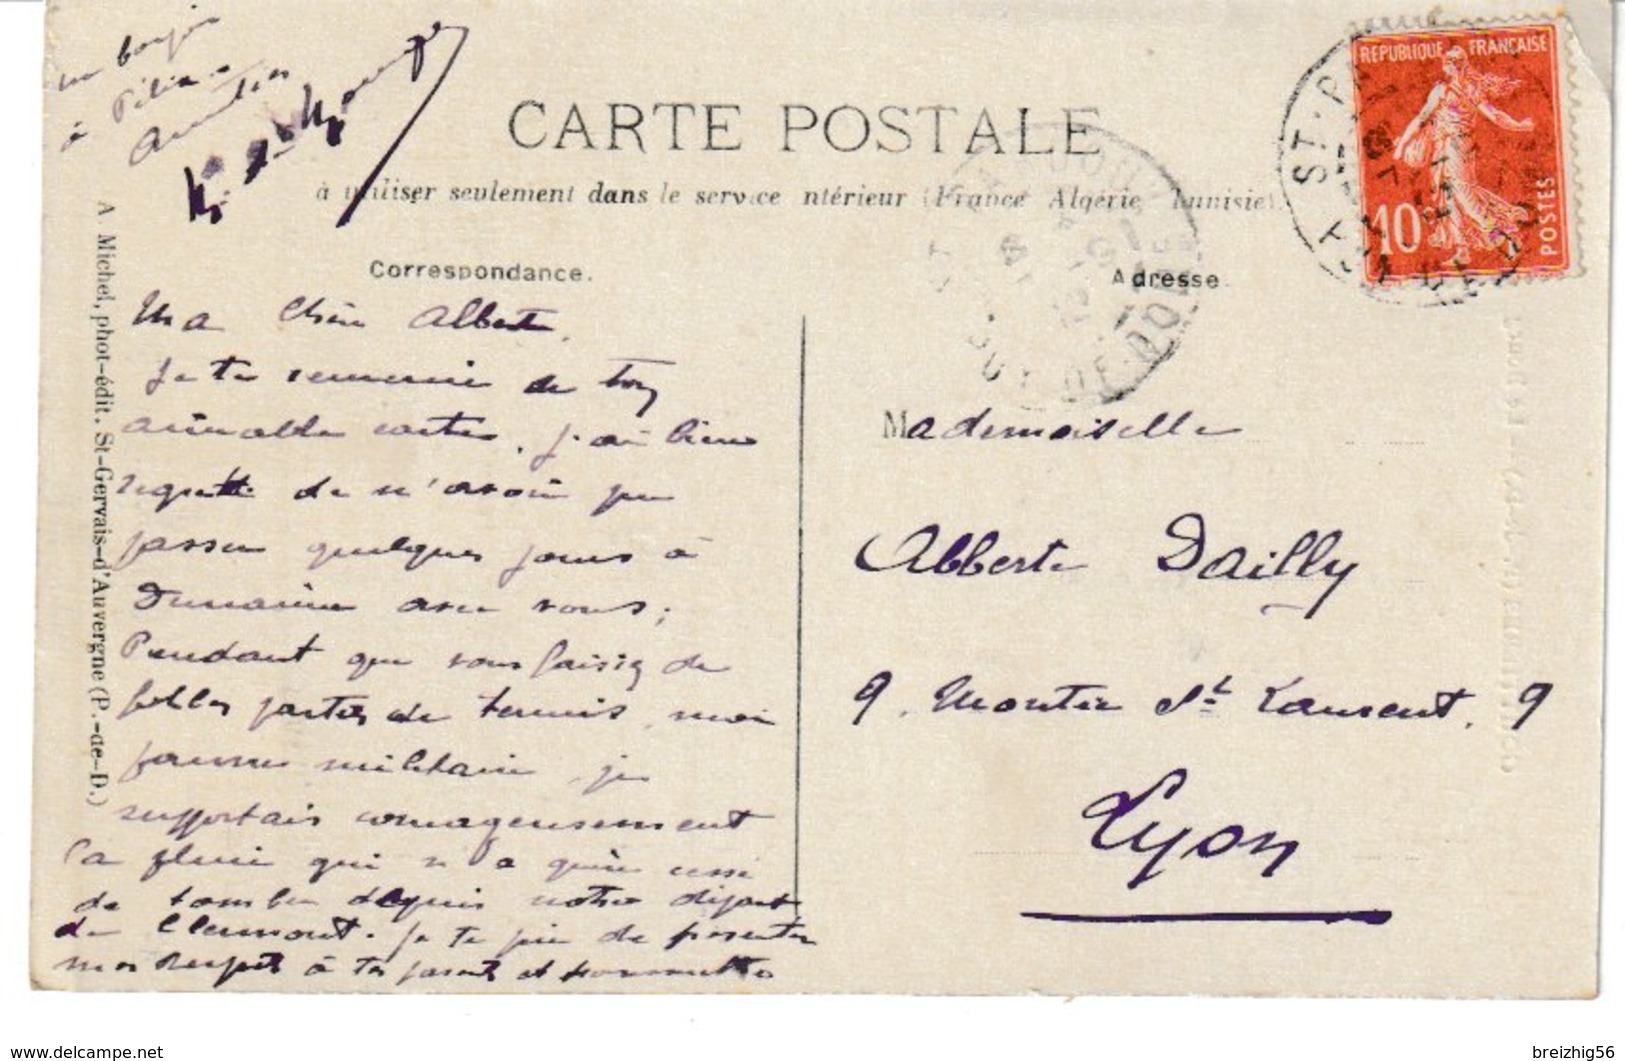 un bonjour
à
CARTE POSTALE
à utiliser seulement dans le service intérieur (France Algérie Tunisie)
REPUBLIQUE FRANÇAISE
10
POSTES
Correspondance.
Adresse
A Michel, phot-édit. St-Gervais-d'Auvergne (P.-de-D.)
Ma Chère Alberte,
Je te remercie de ton
aimable carte. J'ai bien
regretté de n'avoir pu
passer quelques jours à
avec vous;
Pendant que vous faisiez de
folles parties de tennis, moi
pauvre militaire, je
supportais courageusement
la pluie qui n'a guère cessé
de tomber depuis notre départ
de Clermont. Je te prie de présenter
mes respects à tes parents et
Mademoiselle
Alberte Dailly
9. Montée St Laurent. 9
Lyon
www.delcampe.net
breizhig56